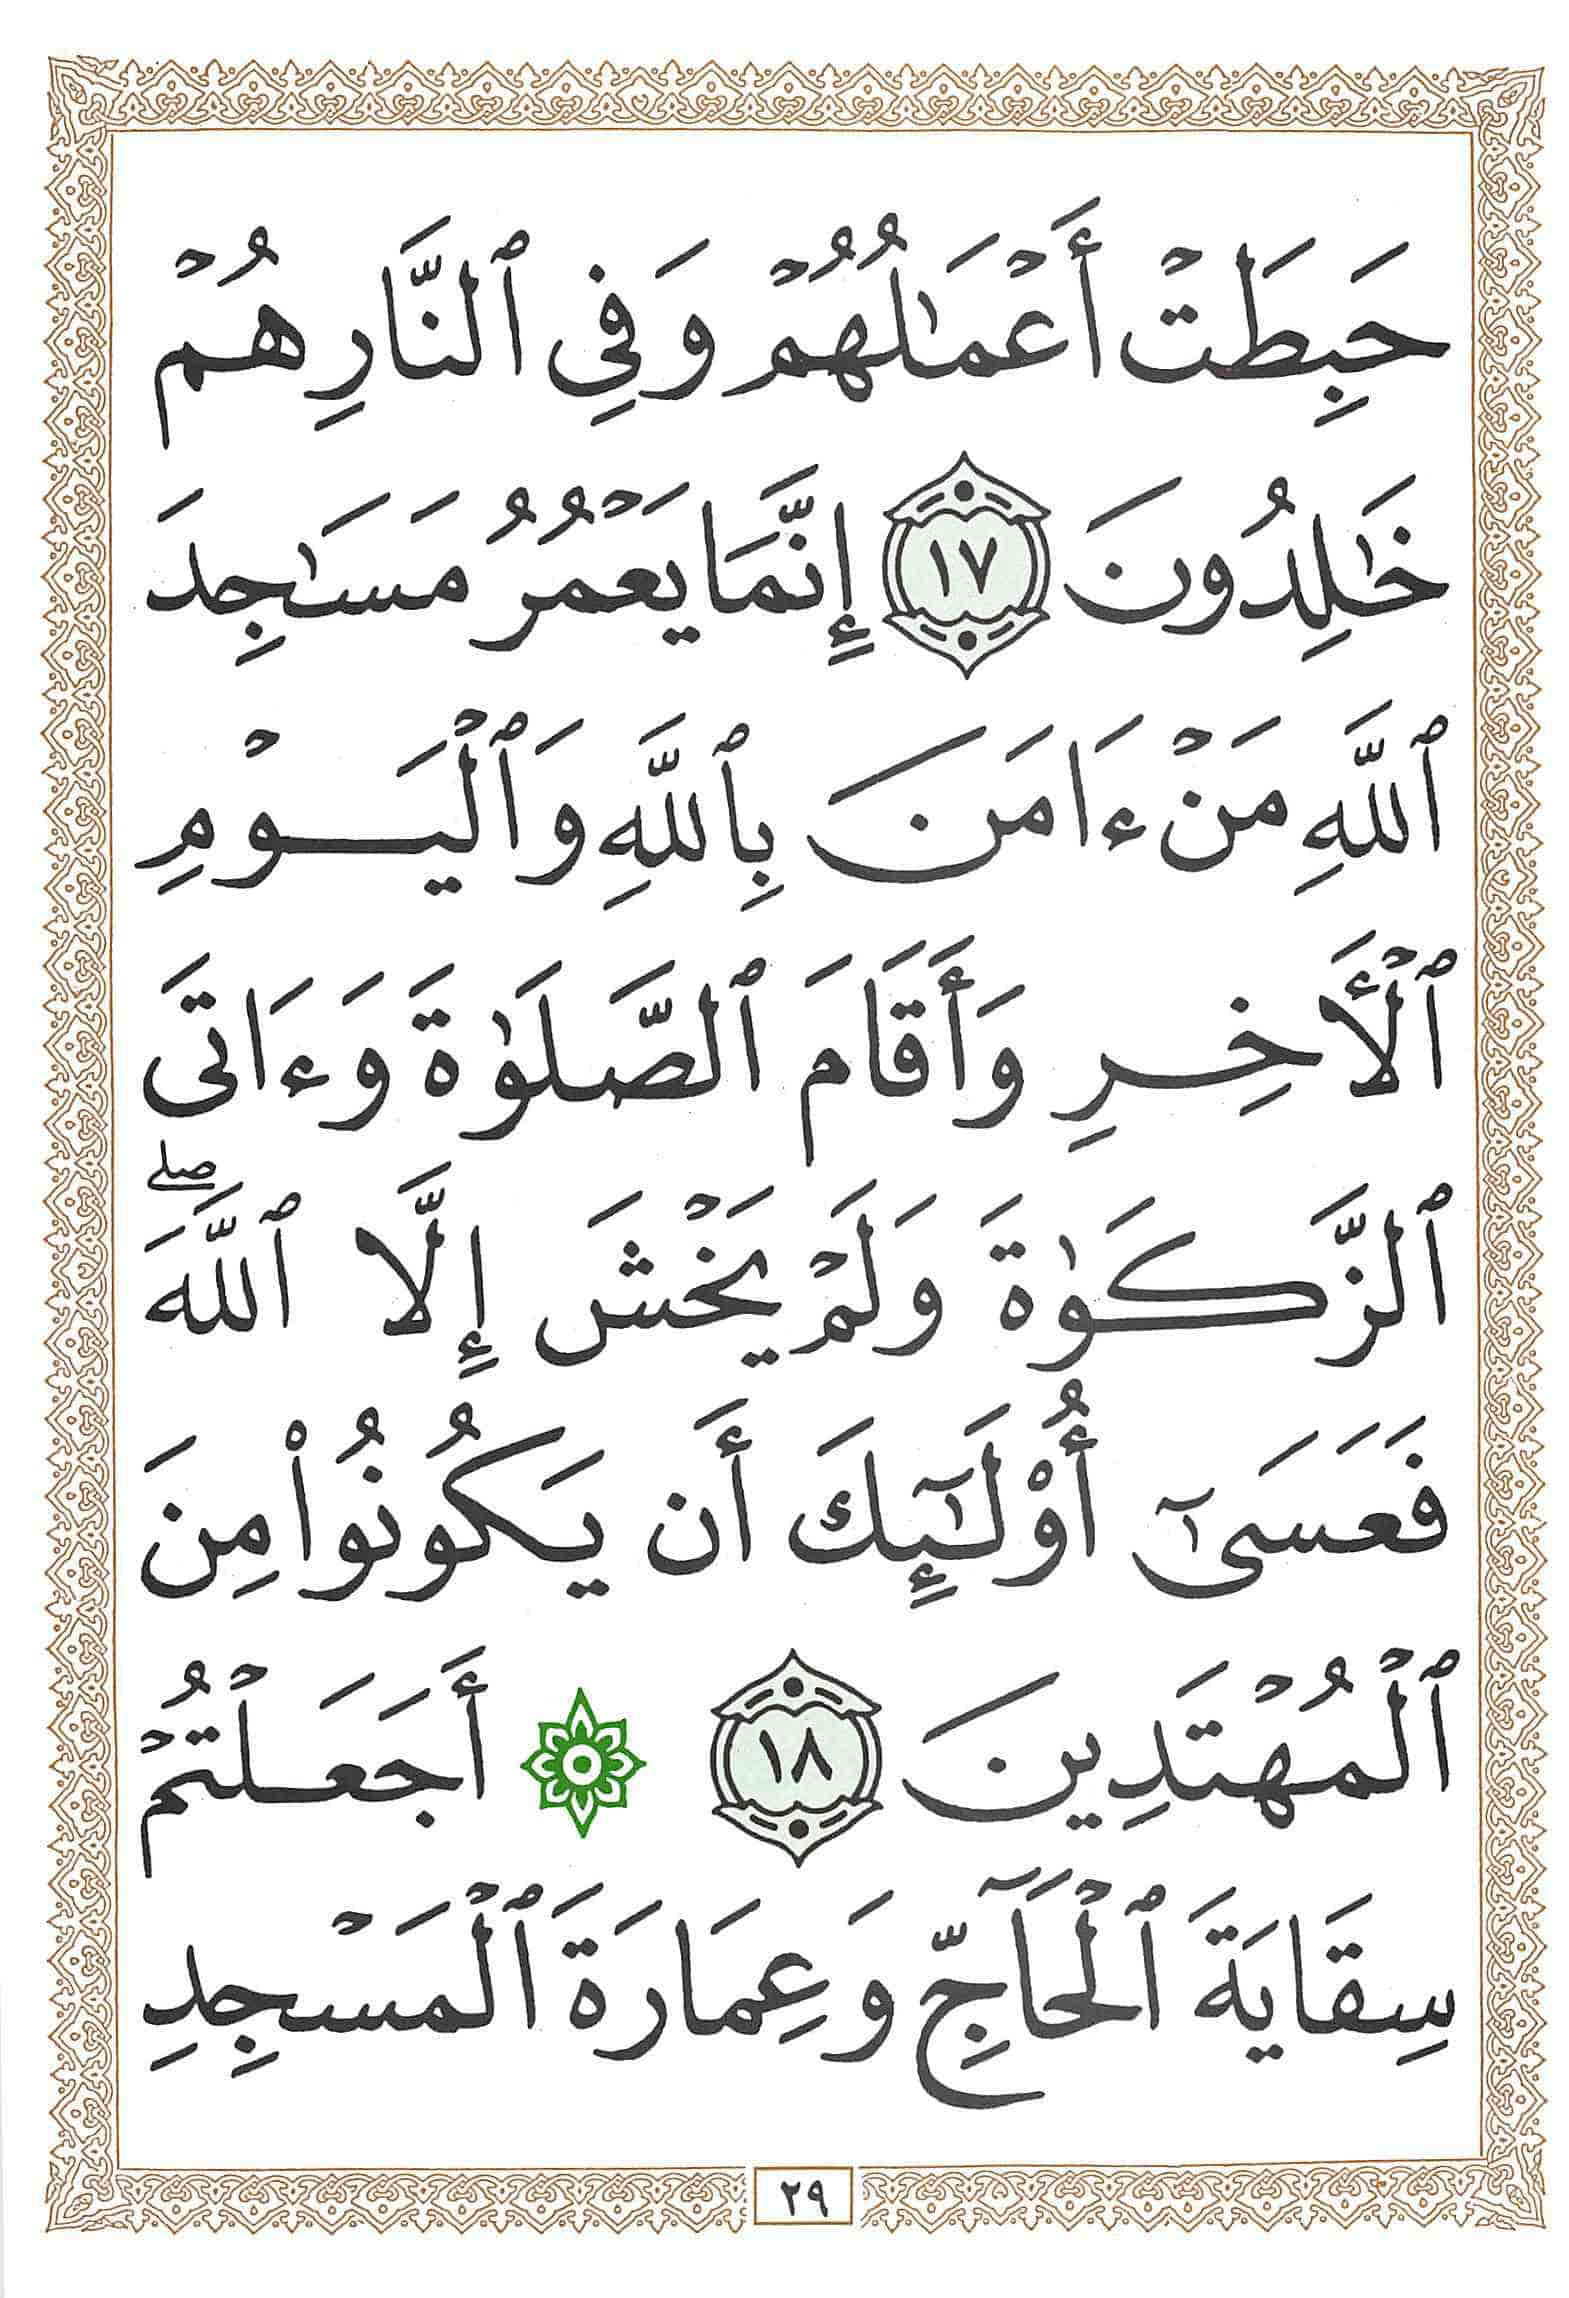 حَبِطَتْ أَعْمَٰلُهُمْ وَفِى ٱلنَّارِ هُمْ
خَٰلِدُونَ ١٧ إِنَّمَا يَعْمُرُ مَسَٰجِدَ
ٱللَّهِ مَنْ ءَامَنَ بِٱللَّهِ وَٱلْيَوْمِ
ٱلْأَخِرِ وَأَقَامَ ٱلصَّلَوٰةَ وَءَاتَى
ٱلزَّكَوٰةَ وَلَمْ يَخْشَ إِلَّا ٱللَّهَ ۖ
فَعَسَىٰٓ أُوْلَٰٓئِكَ أَن يَكُونُوا۟ مِنَ
ٱلْمُهْتَدِينَ ١٨ ۞ أَجَعَلْتُمْ
سِقَايَةَ ٱلْحَآجِّ وَعِمَارَةَ ٱلْمَسْجِدِ
٢٩